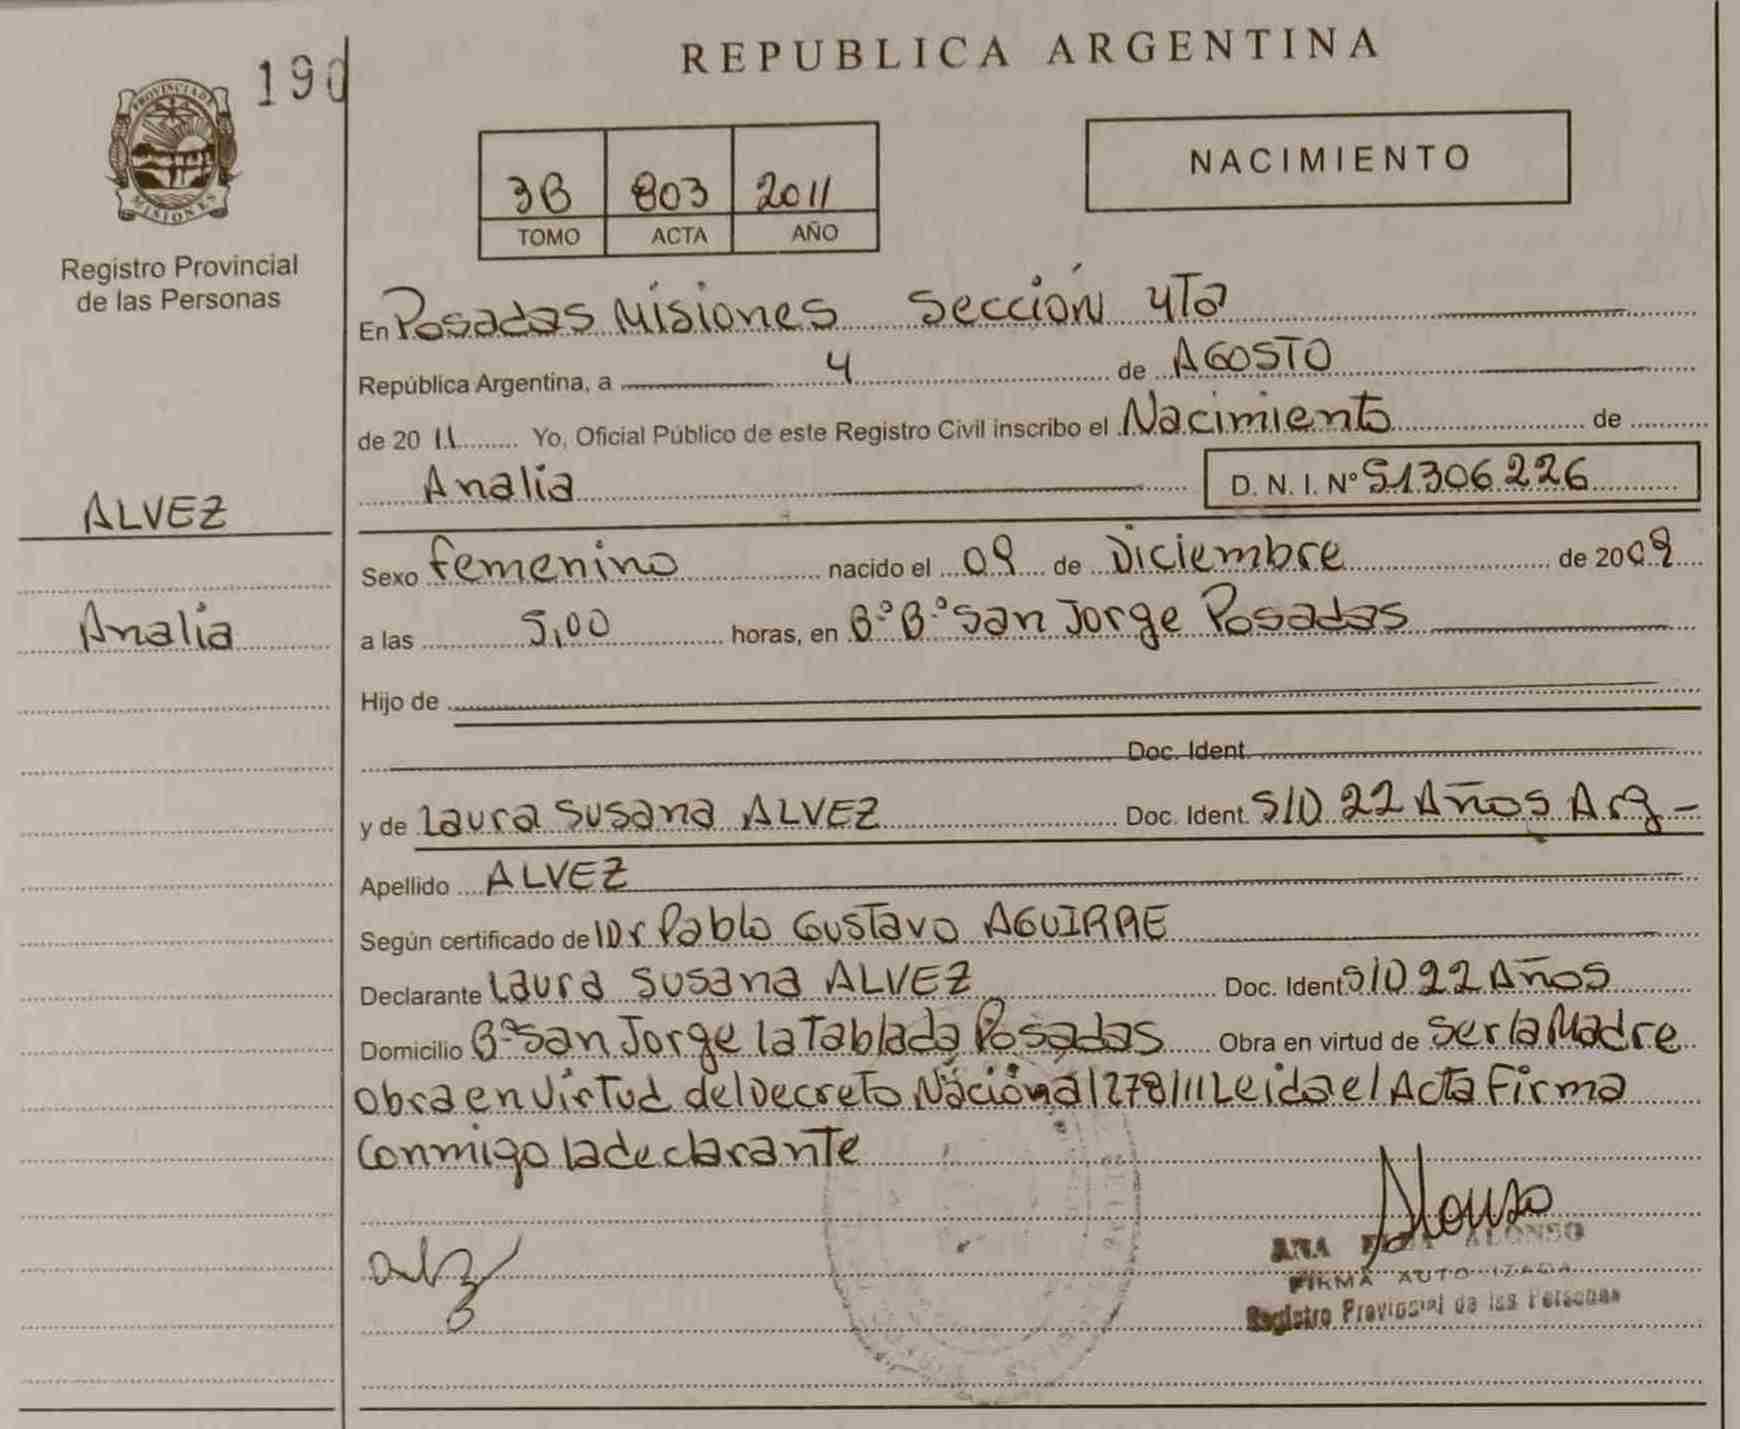 190
REPUBLICA ARGENTINA
PROVINCIA DE
MISIONES
Registro Provincial
de las Personas
3B 803 2011
TOMO ACTA AÑO
NACIMIENTO
En Posadas Misiones Sección 4Ta
República Argentina, a 4 de AGOSTO
de 2011 Yo, Oficial Público de este Registro Civil inscribo el Nacimiento de
Analia D. N. I. N° 51306226
ALVEZ
Sexo Femenino nacido el 09 de Diciembre de 2009
Analia
a las 5,00 horas, en B° B° San Jorge Posadas
Hijo de
Doc. Ident.
y de Laura Susana ALVEZ Doc. Ident. S/D 22 Años Arg -
Apellido ALVEZ
Según certificado de Dr Pablo Gustavo AGUIRRE
Declarante Laura Susana ALVEZ Doc. Ident S/D 22 Años
Domicilio B° San Jorge la Tablada Posadas Obra en virtud de Ser la Madre
Obra en Virtud del Decreto Nacional 278/11 Leida el Acta Firma
Conmigo la declarante
Alonso
ANA ALONSO
FIRMA AUTORIZADA
Registro Provincial de las Personas